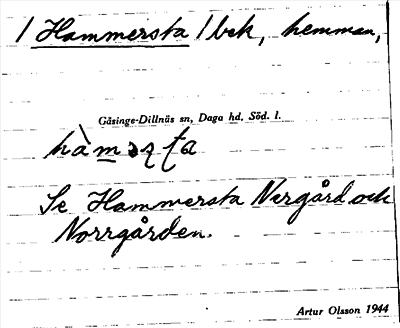 / Hammersta / bek, hemman,
Gåsinge-Dillnäs sn, Daga hd, Söd. l.
hàməʂʈa
Se Hammersta Norgård och
Norrgården.
Artur Olsson 1944